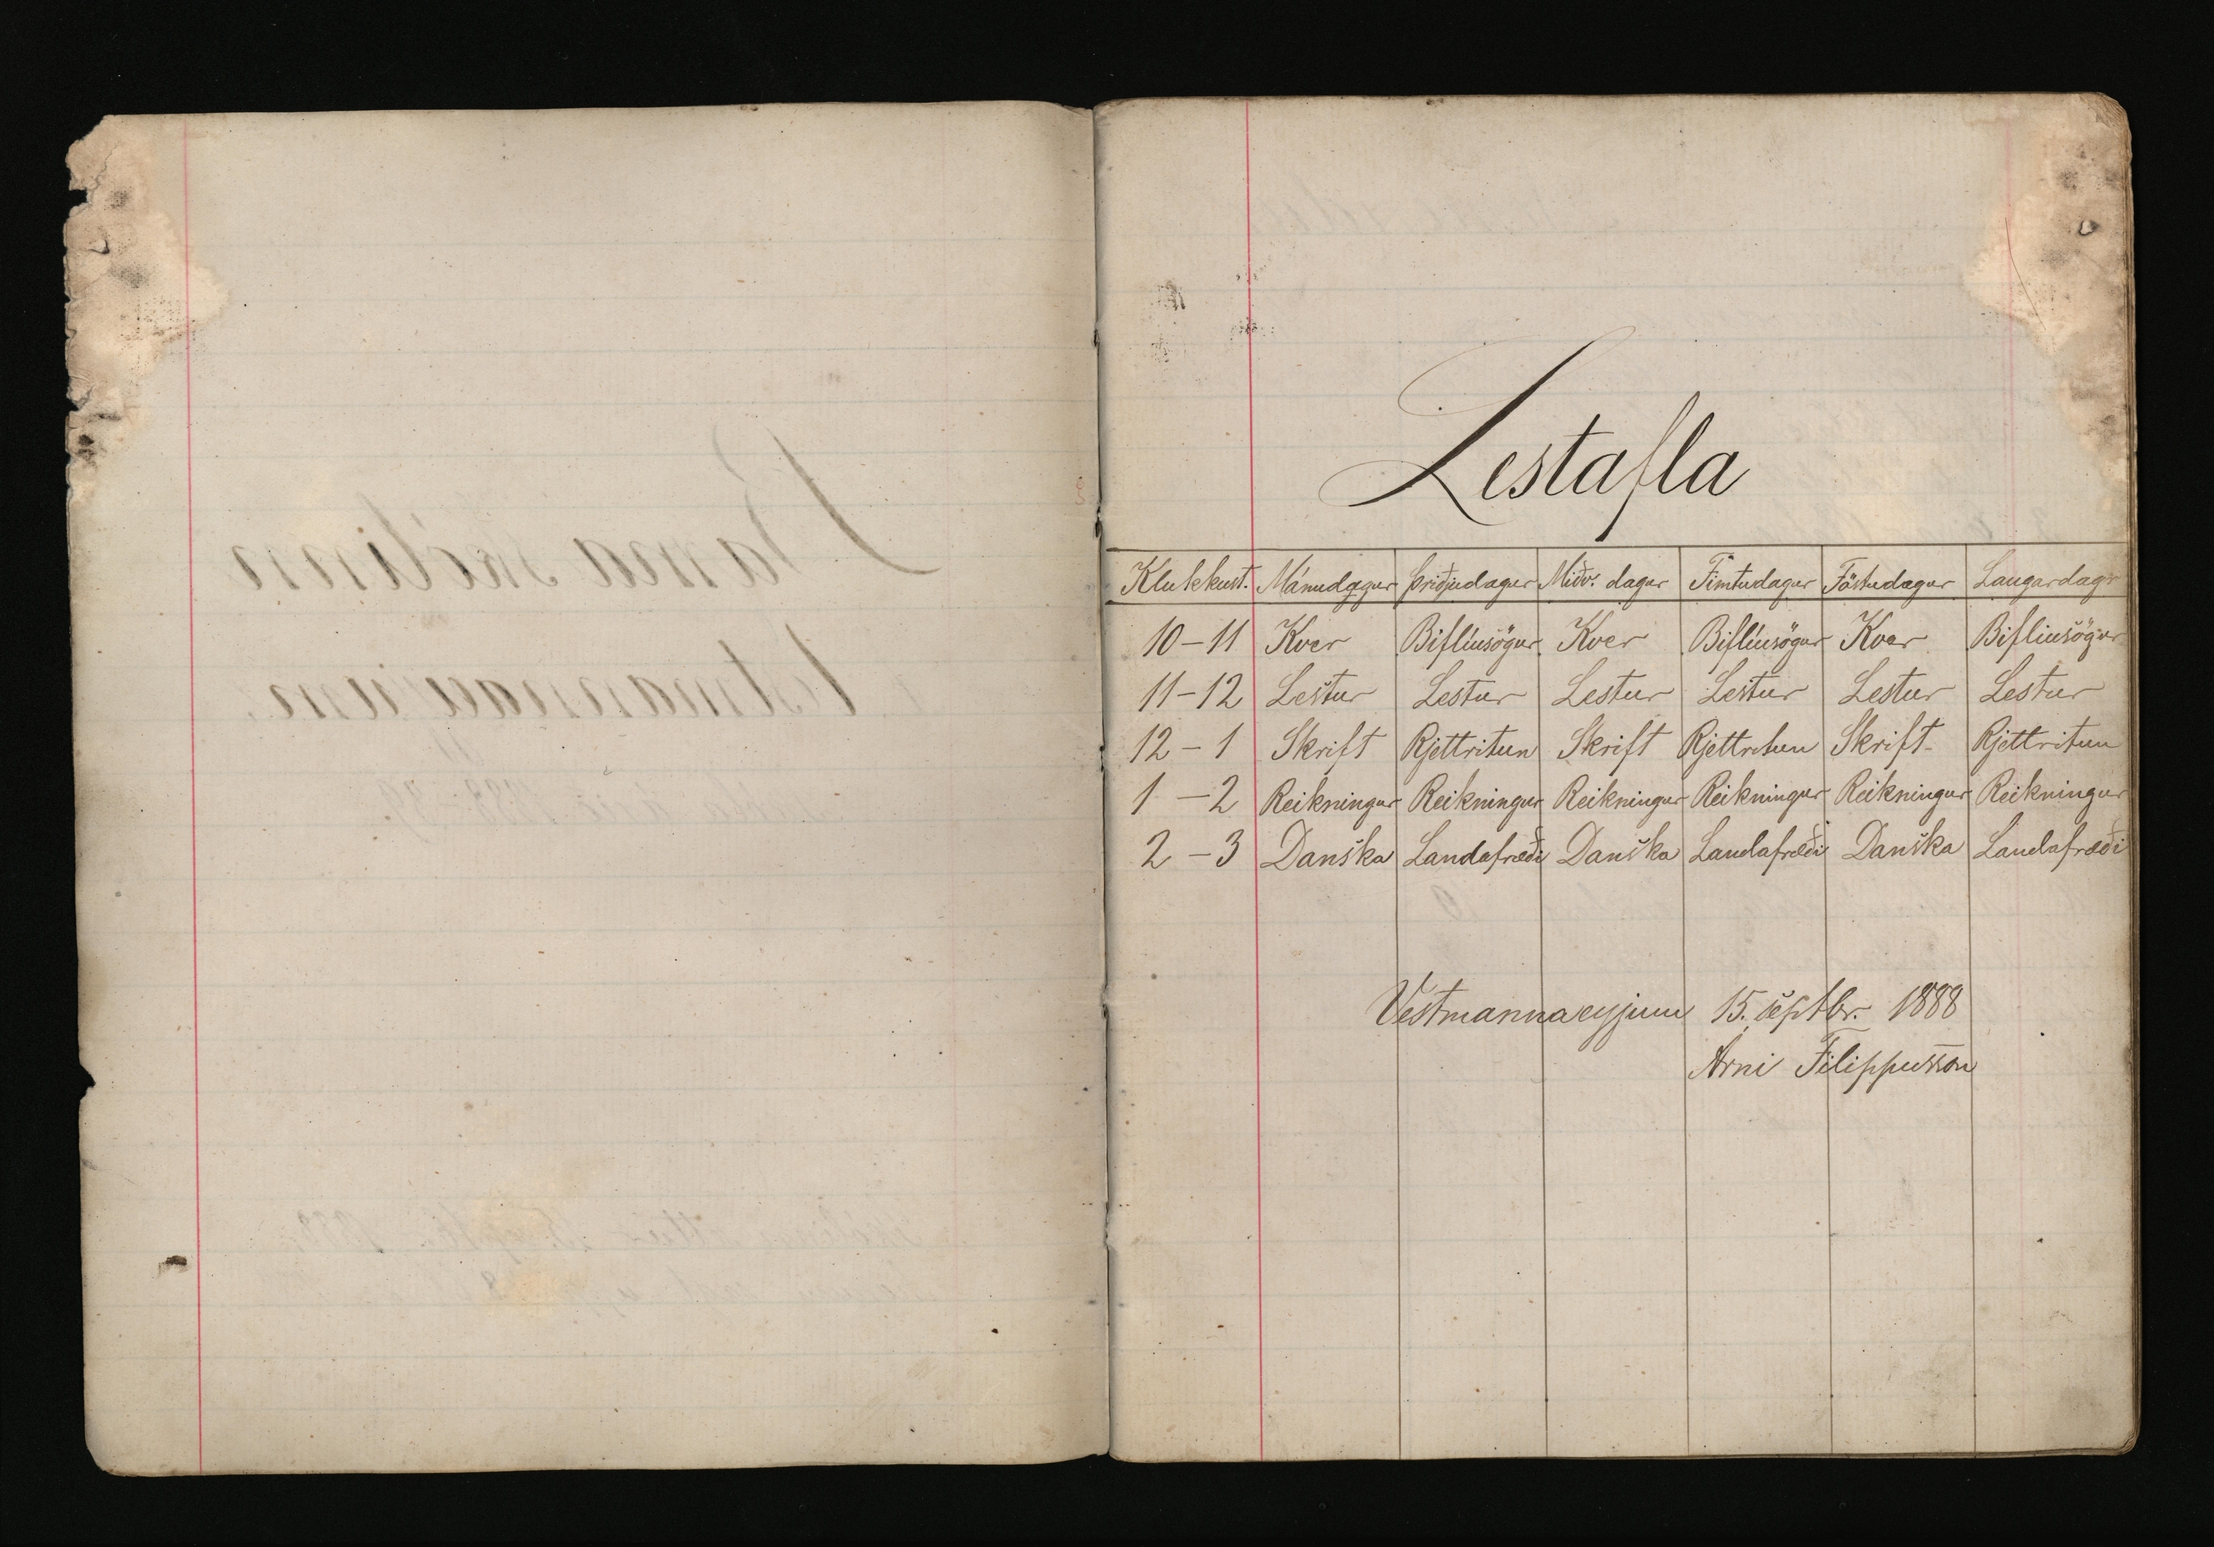 Lestafla
Klukkust. Mánudagur Þriðjudagur Miðv. dagur Fimtudagur Föstudagur Laugardagr
10-11 Kver Biflíusögur Kver Biflíusögur Kver Biflíusögur
11-12 Lestur Lestur Lestur Lestur Lestur Lestur
12-1 Skrift Rjettritun Skrift Rjettritun Skrift Rjettritun
1-2 Reikningur Reikningur Reikningur Reikningur Reikningur Reikningur
2-3 Danska Landafræði Danska Landafræði Danska Landafræði
Vestmannaeyjum 15. septbr. 1888
Árni Filippusson